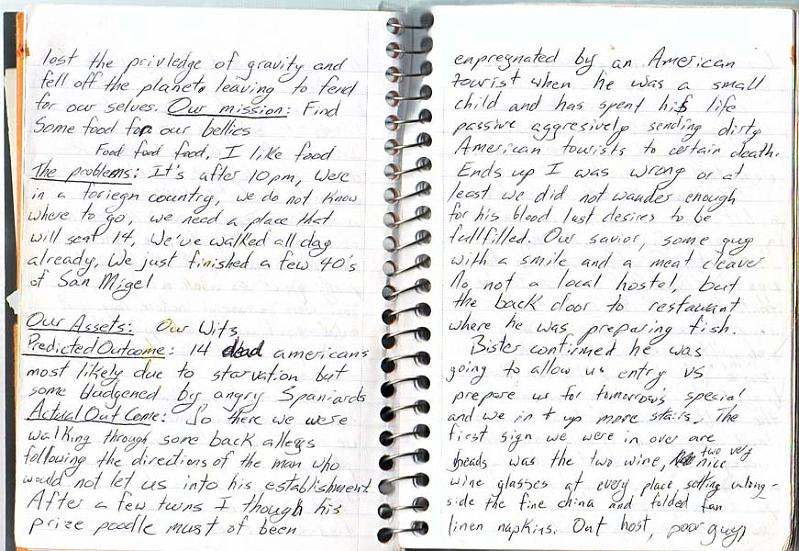 lost the privledge of gravity and
fell off the planet. leaving to fend
for our selves. Our mission: Find
Some food for our bellies
Food food food, I like food
The problems: It's after 10pm, were
in a foriegn country, we do not know
where to go, we need a place that
will seat 14, We've walked all day
already, We just finished a few 40's
of San Migel
Our Assets: Our Wits
Predicted Outcome: 14 dead americans
most likely due to starvation but
some bludgened by angry Spaniards
Actual Out Come: So there we were
walking through some back alleys
following the directions of the man who
would not let us into his establishment.
After a few turns I though his
prize poodle must of been
enpregnated by an American
tourist when he was a small
child and has spent his life
passive aggresively sending dirty
American tourists to certain death.
Ends up I was wrong or at
least we did not wander enough
for his blood lust desires to be
fullfilled. Our savior, some guy
with a smile and a meat cleaver
No not a local hostel, but
the back door to restaurant
where he was preparing fish.
Bister confirmed he was
going to allow us entry vs
prepare us for tomorrows special
and we in t up more stairs. The
first sign we were in over are
heads was the two wine, two very nice
wine glasses at every place setting along-
side the fine china and folded fan
linen napkins. Out host, poor guy,